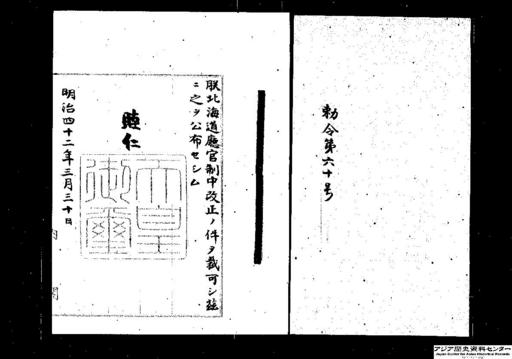 勅令第六十号
朕北海道廳官制中改正ノ件ヲ裁可シ玆
ニ之ヲ公布セシム
睦仁
天皇
御璽
明治四十二年三月三十日
内閣
アジア歴史資料センター
Japan Center for Asian Historical Records